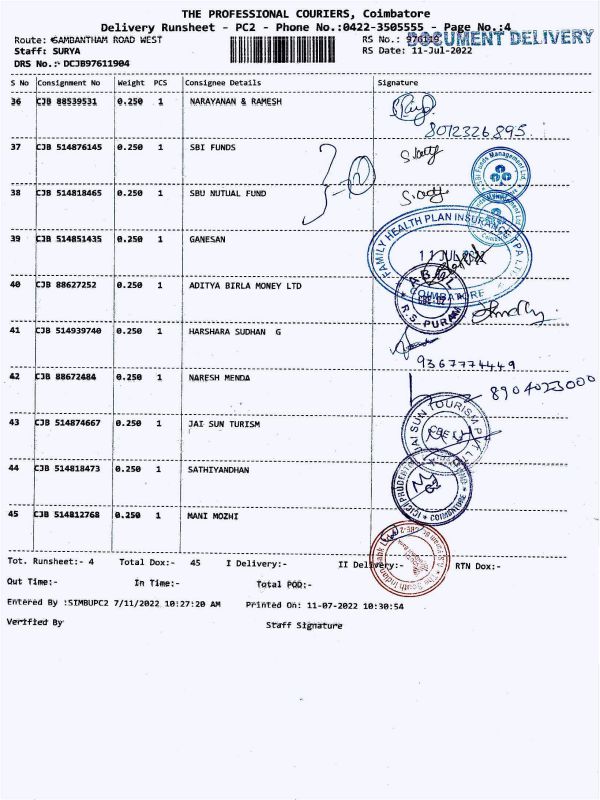 THE PROFESSIONAL COURIERS, Coimbatore
Delivery Runsheet - PC2 - Phone No.:0422-3505555 - Page No.:4
Route: SAMBANTHAM ROAD WEST RS No.: 976119 DOCUMENT DELIVERY
Staff: SURYA RS Date: 11-Jul-2022
DRS No.: DCJB97611904
S No Consignment No Weight PCS Consignee Details Signature
36 CJB 88539531 0.250 1 NARAYANAN & RAMESH
8012326895
37 CJB 514876145 0.250 1 SBI FUNDS
38 CJB 514818465 0.250 1 SBU NUTUAL FUND
39 CJB 514851435 0.250 1 GANESAN
FAMILY HEALTH PLAN INSURANCE TPA
40 CJB 88627252 0.250 1 ADITYA BIRLA MONEY LTD
R.S. PURAM
41 CJB 514939740 0.250 1 HARSHARA SUDHAN G
9367774449
42 CJB 88672484 0.250 1 NARESH MENDA
8904023000
43 CJB 514874667 0.250 1 JAI SUN TURISM
JAI SUN TOURISM
44 CJB 514818473 0.250 1 SATHIYANDHAN
COIMBATORE
45 CJB 514812768 0.250 1 MANI MOZHI
Tot. Runsheet:- 4 Total Dox:- 45 I Delivery:- II Delivery:- RTN Dox:-
Out Time:- In Time:- Total POD:-
Entered By :SIMBUPC2 7/11/2022 10:27:20 AM Printed On: 11-07-2022 10:30:54
Verified By Staff Signature